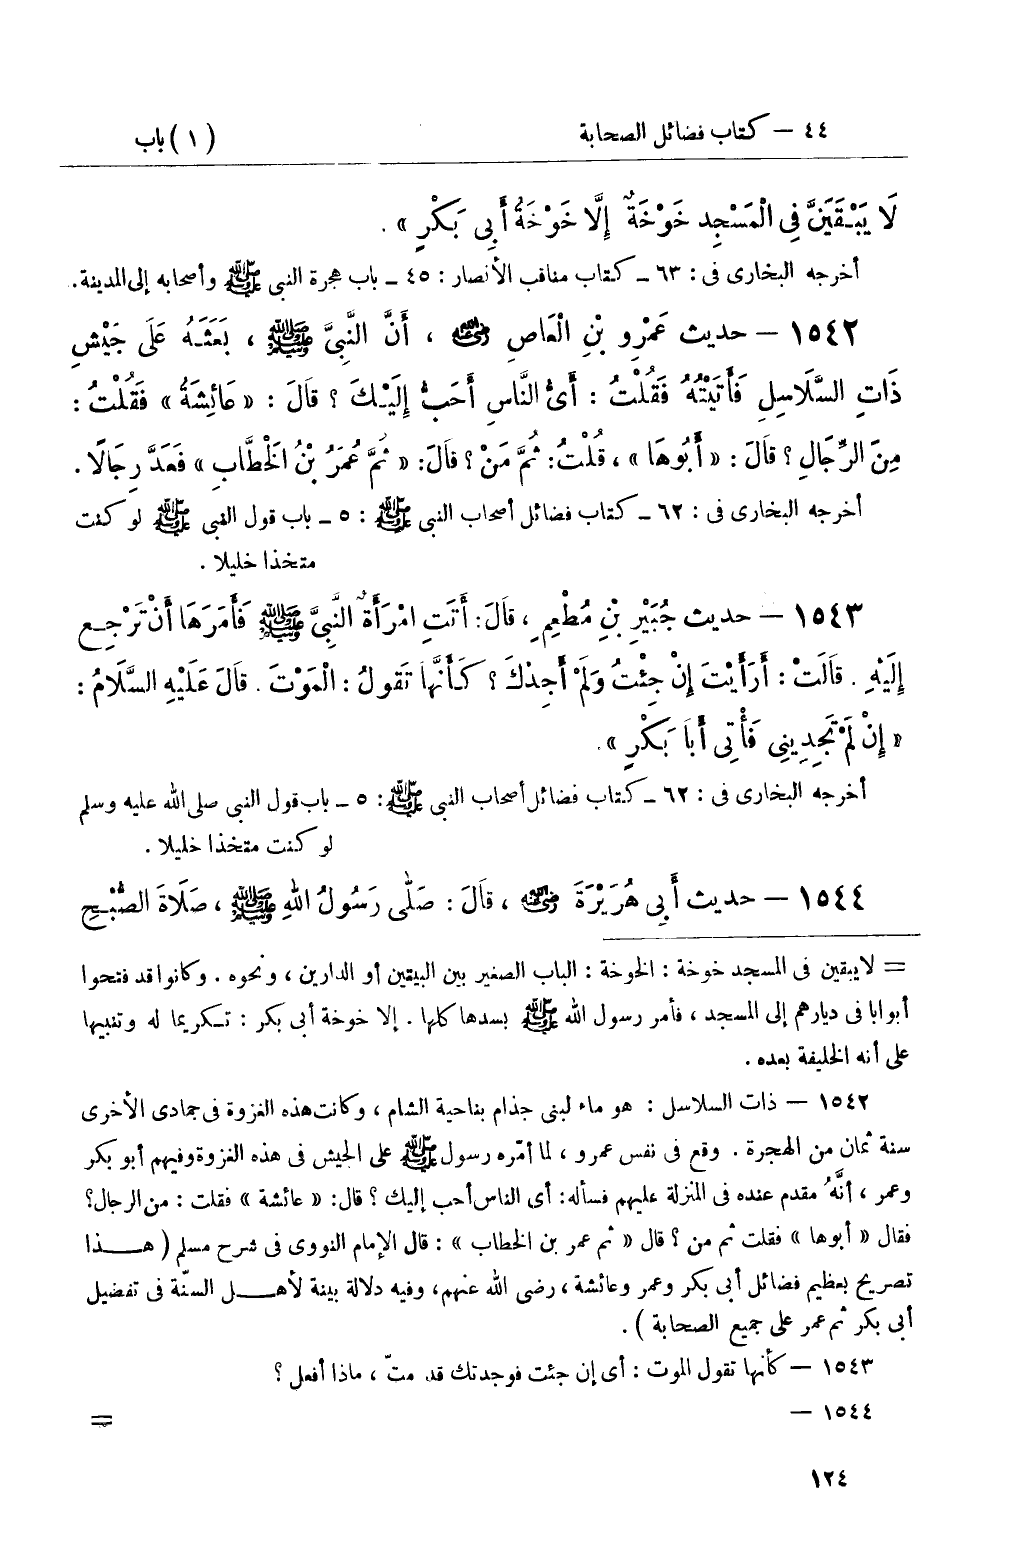 ٤٤ — كتاب فضائل الصحابة (١) باب
لَا يَبْقَيَنَّ فِى الْمَسْجِدِ خَوْخَةٌ إِلَّا خَوْخَةُ أَبِى بَكْرٍ» .
أخرجه البخارى فى : ٦٣ ـ كتاب مناقب الأنصار : ٤٥ ـ باب هجرة النبى ﷺ وأصحابه إلى المدينة.
١٥٤٢ — حديث عَمْرِو بْنِ الْعَاصِ رضي الله عنه ، أَنَّ النَّبِىَّ ﷺ ، بَعَثَهُ عَلَى جَيْشِ
ذَاتِ السَّلَاسِلِ فَأَتَيْتُهُ فَقُلْتُ : أَىُّ النَّاسِ أَحَبُّ إِلَيْكَ ؟ قَالَ : « عَائِشَةُ » فَقُلْتُ :
مِنَ الرِّجَالِ ؟ قَالَ : « أَبُوهَا » ، قُلْتُ : ثُمَّ مَنْ ؟ قَالَ: « ثُمَّ عُمَرُ بْنُ الْخَطَّابِ » فَعَدَّ رِجَالًا .
أخرجه البخارى فى : ٦٢ ـ كتاب فضائل أصحاب النبى ﷺ : ٥ ـ باب قول النبى ﷺ لو كنت
متخذا خليلا .
١٥٤٣ — حديث جُبَيْرِ بْنِ مُطْعِمٍ ، قَالَ: أَتَتِ امْرَأَةٌ النَّبِىَّ ﷺ فَأَمَرَهَا أَنْ تَرْجِعَ
إِلَيْهِ . قَالَتْ : أَرَأَيْتَ إِنْ جِئْتُ وَلَمْ أَجِدْكَ ؟ كَأَنَّهَا تَقُولُ : الْمَوْتَ . قَالَ عَلَيْهِ السَّلَامُ :
« إِنْ لَمْ تَجِدِينِى فَأْتِى أَبَا بَكْرٍ » .
أخرجه البخارى فى : ٦٢ ـ كتاب فضائل أصحاب النبى ﷺ: ٥ ـ باب قول النبى صلى الله عليه وسلم
لو كنت متخذا خليلا .
١٥٤٤ — حديث أَبِى هُرَيْرَةَ رضي الله عنه ، قَالَ : صَلَّى رَسُولُ اللهِ ﷺ ، صَلَاةَ الصُّبْحِ
= لايبقين فى المسجد خوخة : الخوخة : الباب الصغير بين البيتين أو الدارين ، ونحوه . وكانوا قد فتحوا
أبوابا فى ديارهم إلى المسجد ، فأمر رسول الله ﷺ بسدها كلها . إلا خوخة أبى بكر : تكريما له وتنبيها
على أنه الخليفة بعده .
١٥٤٢ — ذات السلاسل : هو ماء لبنى جذام بناحية الشام ، وكانت هذه الغزوة فى جمادى الأخرى
سنة ثمان من الهجرة . وقع فى نفس عمرو ، لما أمّره رسول ﷺ على الجيش فى هذه الغزوة وفيهم أبو بكر
وعمر ، أنَّهُ مقدم عنده فى المنزلة عليهم فسأله: أى الناس أحب إليك ؟ قال: « عائشة » فقلت : من الرجال؟
فقال « أبوها » فقلت ثم من ؟ قال « ثم عمر بن الخطاب » : قال الإمام النووى فى شرح مسلم ( هذا
تصريح بعظيم فضائل أبى بكر وعمر وعائشة ، رضى الله عنهم، وفيه دلالة بينة لأهل السنّة فى تفضيل
أبى بكر ثم عمر على جميع الصحابة ) .
١٥٤٣ — كأنها تقول الموت : أى إن جئت فوجدتك قد متّ ، ماذا أفعل ؟
١٥٤٤ — =
١٢٤